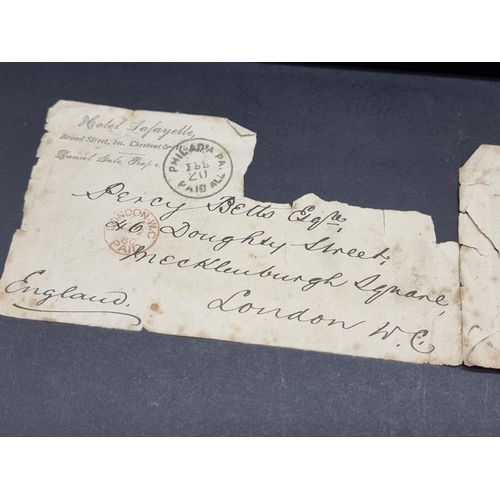 Hotel Lafayette,
Broad Street, bet. Chestnut &
Daniel Gale, Prop'r.
PHILAD'A PA.
FEB
20
PAID ALL
Percy Betts Esqre,
46 Doughty Street,
LONDON·W.C
PAID
Mecklenburgh Square,
England.
London W.C.